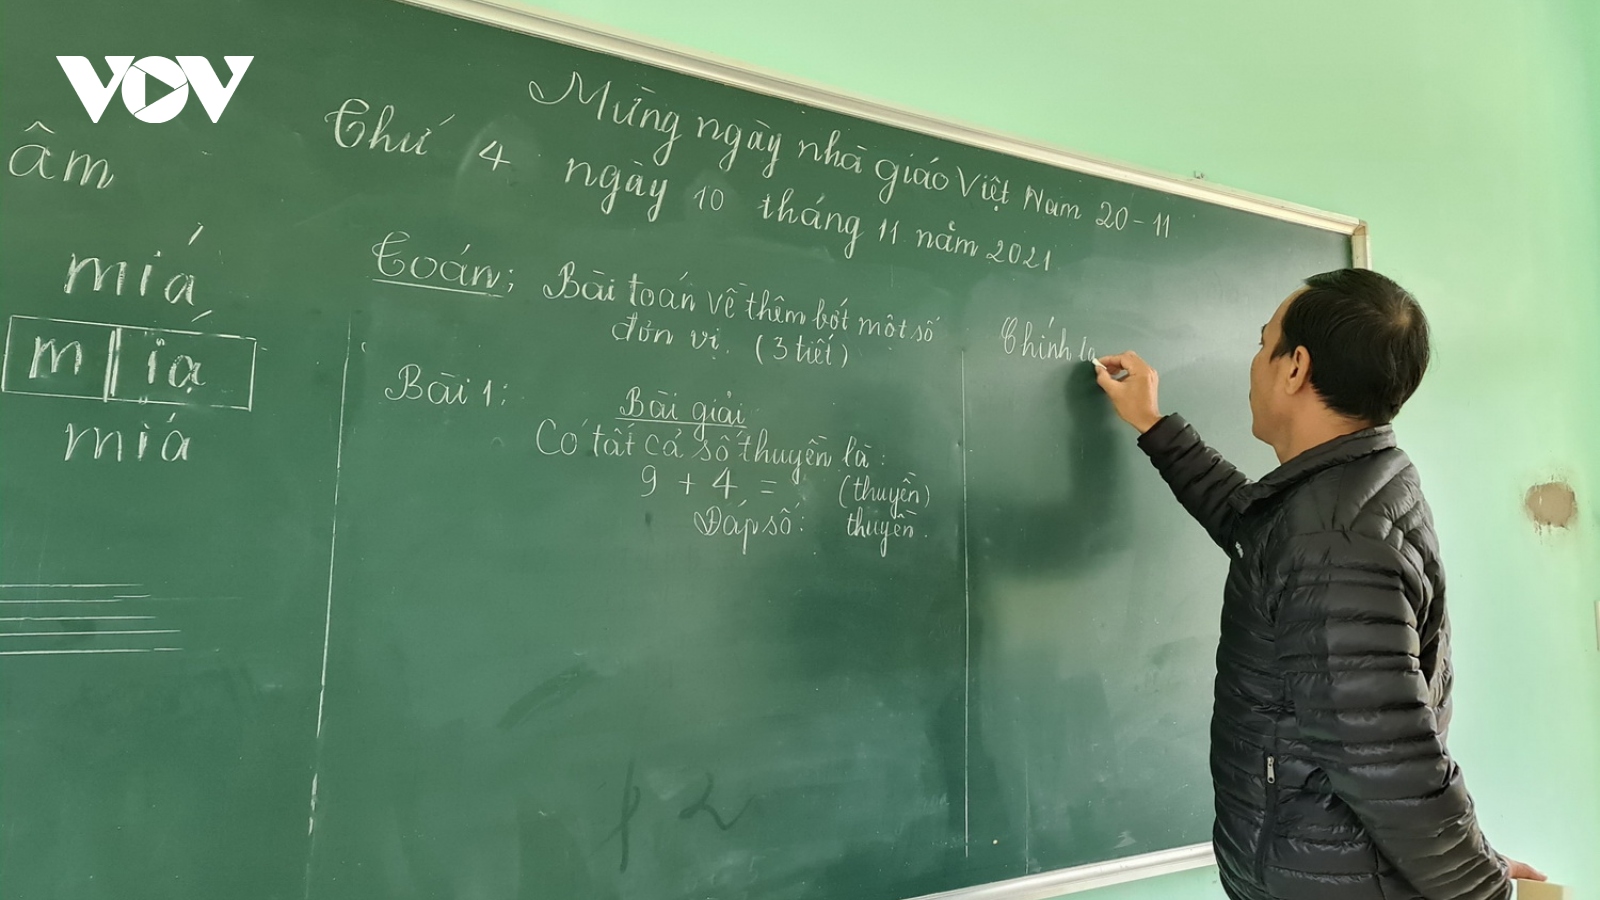 VOV
Mừng ngày nhà giáo Việt Nam 20-11
Thứ 4 ngày 10 tháng 11 năm 2021
âm
mía
m ia
mía
Toán: Bài toán về thêm bớt một số
đơn vị. (3 tiết)
Bài 1:
Bài giải
Có tất cả số thuyền là:
9 + 4 = (thuyền)
Đáp số: thuyền.
Chính